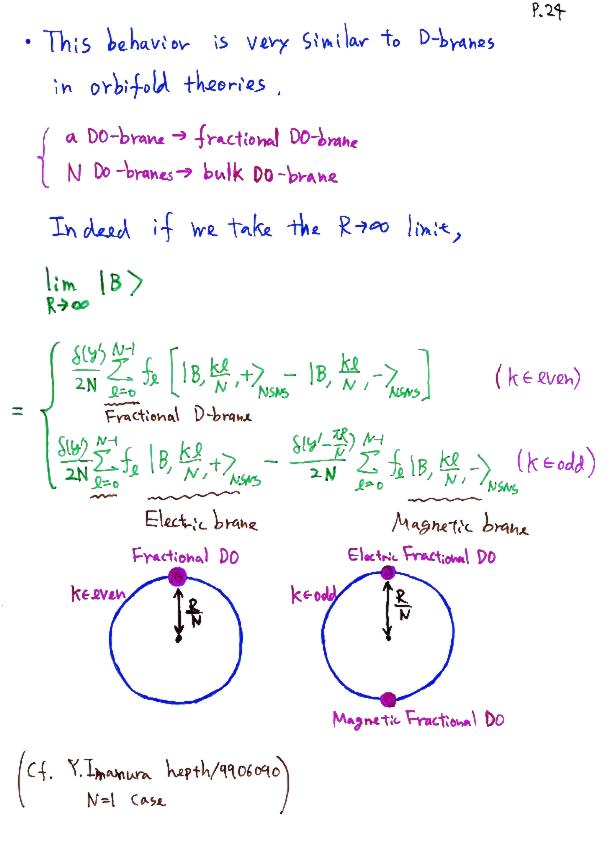 P.24
• This behavior is very similar to D-branes
in orbifold theories.
{ a D0-brane → fractional D0-brane
N D0-branes → bulk D0-brane
Indeed if we take the R→∞ limit,
lim |B⟩
R→∞
= { δ(y')/2N Σ_{ℓ=0}^{N-1} f_ℓ [ |B, kℓ/N, +⟩_{NSNS} − |B, kℓ/N, −⟩_{NSNS} ] (k∈even)
Fractional D-brane
δ(y')/2N Σ_{ℓ=0}^{N-1} f_ℓ |B, kℓ/N, +⟩_{NSNS} − δ(y'−πR/N)/2N Σ_{ℓ=0}^{N-1} f_ℓ |B, kℓ/N, −⟩_{NSNS} (k∈odd)
Electric brane Magnetic brane
Fractional D0 Electric Fractional D0
k∈even R/N k∈odd R/N
Magnetic Fractional D0
(Cf. Y.Imamura hepth/9906090
N=1 case)